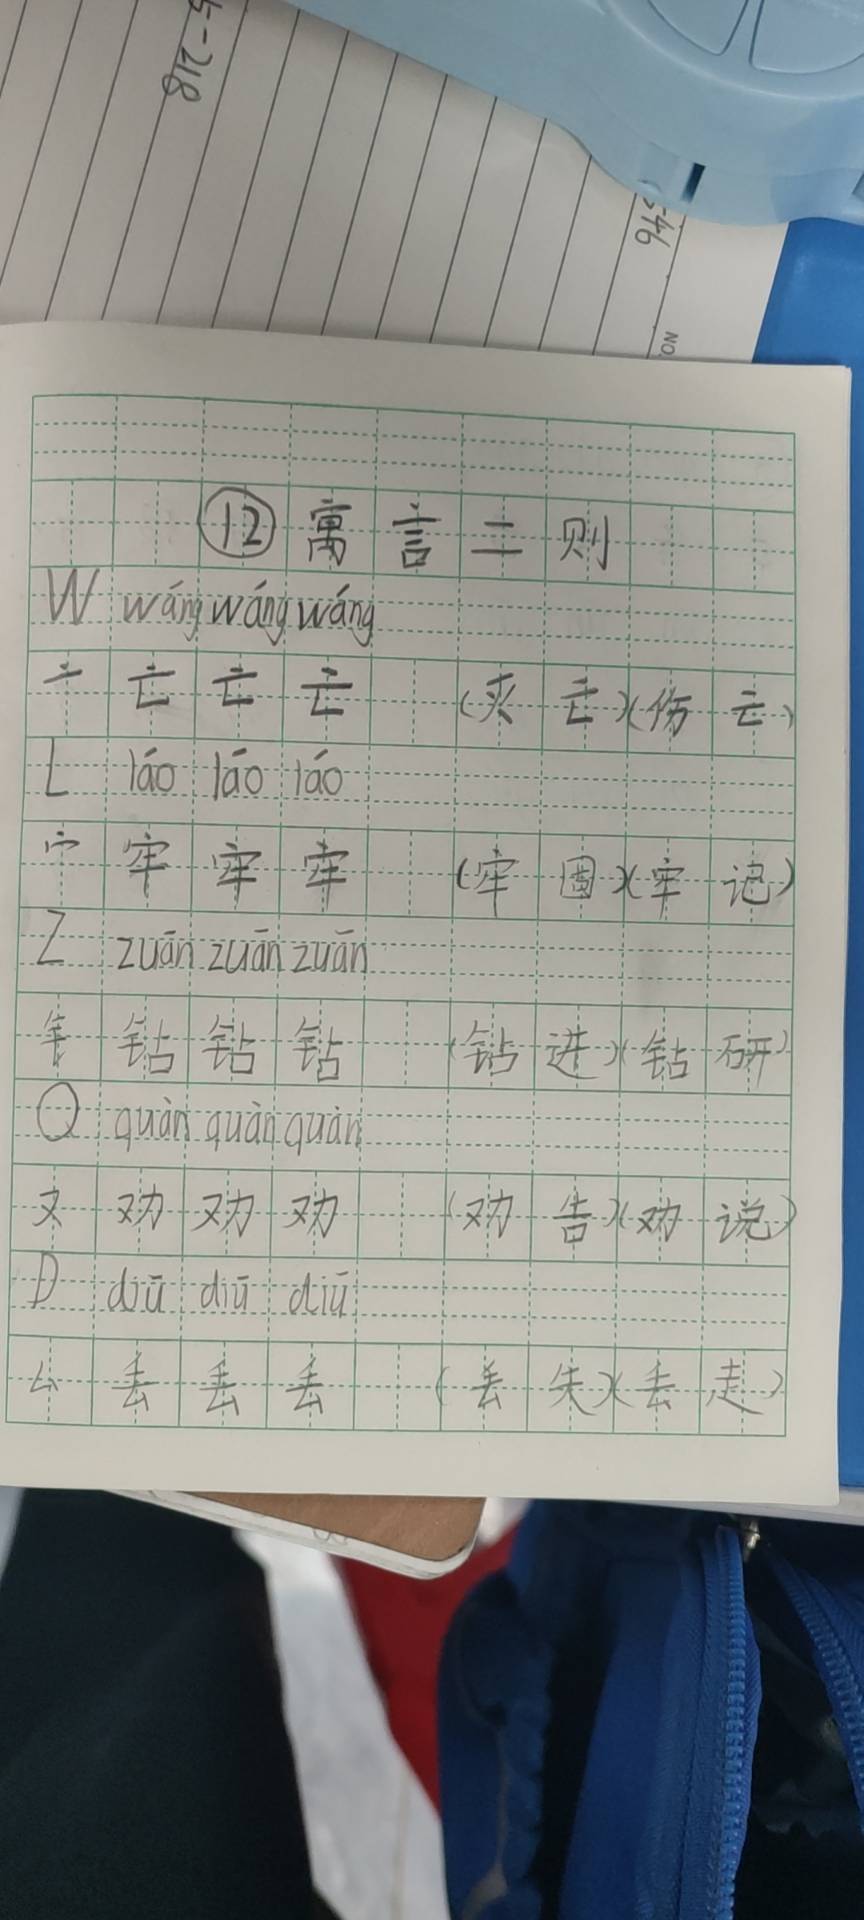 5-218
546
NO.
⑫ 寓言二则
W wáng wáng wáng
亠 亡 亡 亡 (灭亡)(伤亡)
L láo láo láo
宀 牢 牢 牢 (牢固)(牢记)
Z zuān zuān zuān
钅 钻 钻 钻 (钻进)(钻研)
Q quàn quàn quàn
又 劝 劝 劝 (劝告)(劝说)
D diū diū diū
厶 丢 丢 丢 (丢失)(丢走)